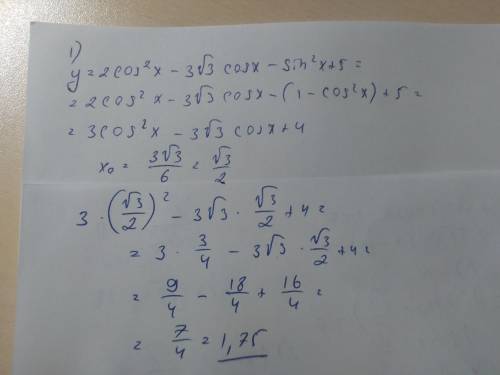 1)
y = 2cos²x − 3√3 cosx − sin²x + 5 =
= 2cos²x − 3√3 cosx − (1 − cos²x) + 5 =
= 3cos²x − 3√3 cosx + 4
x₀ = 3√3/6 = √3/2
3 · (√3/2)² − 3√3 · √3/2 + 4 =
= 3 · 3/4 − 3√3 · √3/2 + 4 =
= 9/4 − 18/4 + 16/4 =
= 7/4 = 1,75